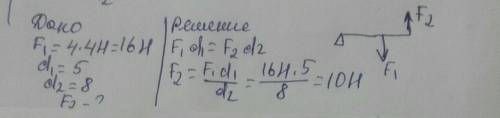 Дано
F₁ = 4.4Н=16Н
d₁ = 5
d₂ = 8
F₂ - ?
Решение
F₁ d₁ = F₂ d₂
F₂ = F₁ d₁ / d₂ = 16Н.5 / 8 = 10Н
F₂
F₁